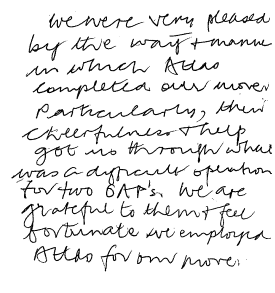 we were very pleased
by the way + manne
in which Atlas
completed our move.
Particularly, their
cheerfulness + help
got us through what
was a difficult operation
for two OAP's. We are
grateful to them + feel
fortunate we employed
Atlas for our move.